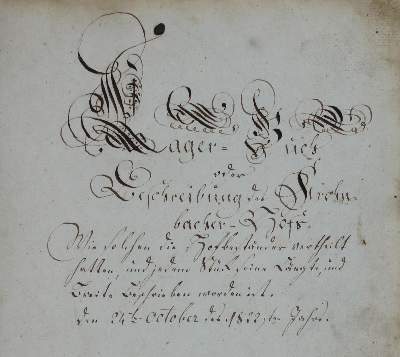 Lager-Buch
oder
Beschreibung des Krohn-
bacher-Hofs.
Wie solchen die Hofbeständer vertheilt
hatten, und jedem Stük seine Längte, und
Breite Beschrieben worden ist.
Den 24t. October des 1822ten Jahrs.